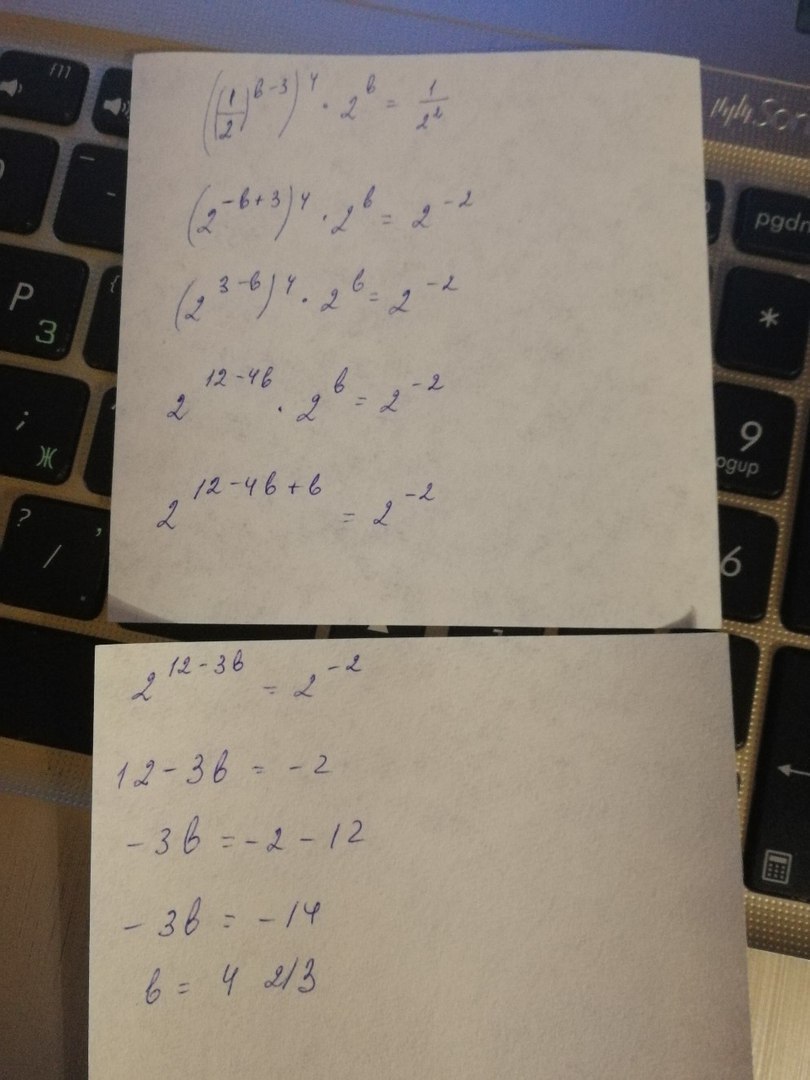 ((1/2)^в-3)^4 · 2^в = 1/2^2
(2^-в+3)^4 · 2^в = 2^-2
(2^3-в)^4 · 2^в = 2^-2
2^12-4в · 2^в = 2^-2
2^12-4в+в = 2^-2
2^12-3в = 2^-2
12-3в = -2
-3в = -2-12
-3в = -14
в = 4 2/3
P
З
;
Ж
?
,
/
pgdn
*
9
pgup
6